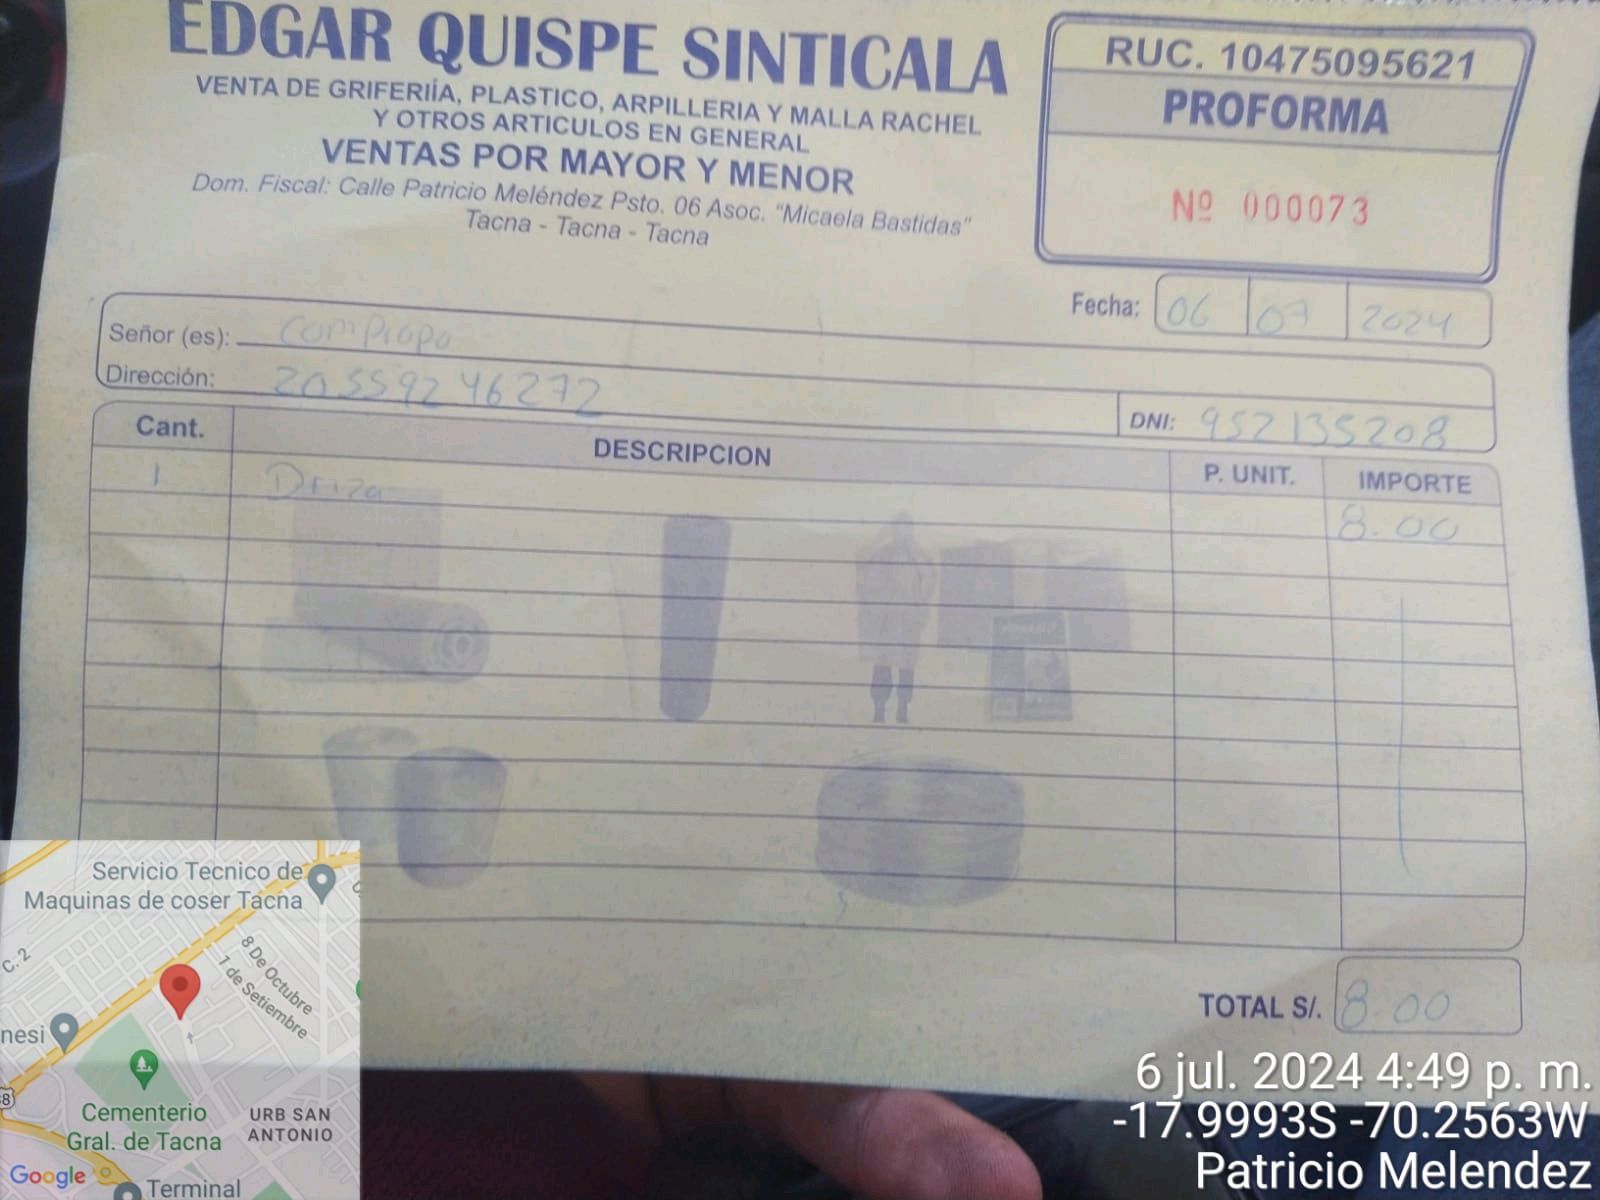 EDGAR QUISPE SINTICALA
VENTA DE GRIFERIÍA, PLASTICO, ARPILLERIA Y MALLA RACHEL
Y OTROS ARTICULOS EN GENERAL
VENTAS POR MAYOR Y MENOR
Dom. Fiscal: Calle Patricio Meléndez Psto. 06 Asoc. "Micaela Bastidas"
Tacna - Tacna - Tacna
RUC. 10475095621
PROFORMA
Nº 000073
Fecha: 06 07 2024
Señor (es): Compropo
Dirección: 20559246272
DNI: 952135208
Cant. DESCRIPCION P. UNIT. IMPORTE
1 Driza 8.00
TOTAL S/. 8.00
Servicio Tecnico de
Maquinas de coser Tacna
C. 2
8 De Octubre
1 de Setiembre
nesi
8
Cementerio
Gral. de Tacna
URB SAN
ANTONIO
Google
Terminal
6 jul. 2024 4:49 p. m.
-17.9993S -70.2563W
Patricio Melendez